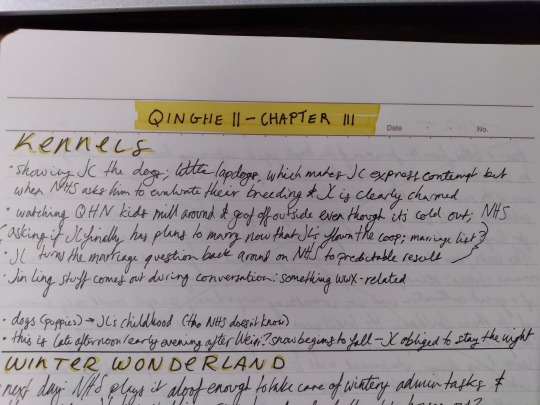 QINGHE II - CHAPTER III
Date . . No.
Kennels
• showing JC the dogs; little lapdogs, which makes JC express contempt but
when NHS asks him to evaluate their breeding & JC is clearly charmed
• watching QHN kids mill around & goof off outside even though it's cold out; NHS
asking if JC finally has plans to marry now that JL's flown the coop; marriage list?
• JC turns the marriage question back around on NHS to predictable result
• Jin Ling stuff comes out during conversation: something WWX-related
• dogs (puppies) → JL's childhood (tho NHS doesn't know)
• this is late afternoon/early evening after Weiqi? snow begins to fall - JC obliged to stay the night
WINTER WONDERLAND
next day: NHS plays it aloof enough to take care of wintery admin tasks &